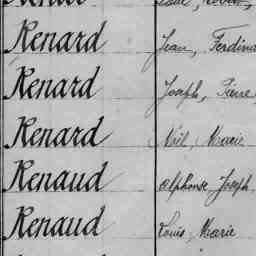 Renard Jean, Ferdina
Renard Joseph, Pierre
Renard Noël, Marie
Renaud Alphonse Joseph
Renaud Louis, Marie